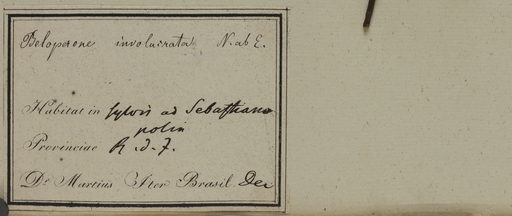 Beloperone involucrata N. ab E.
Habitat in sylvis ad Sebastiano
polin
Provinciae R. d. J.
Dr Martius Iter Brasil. Dec